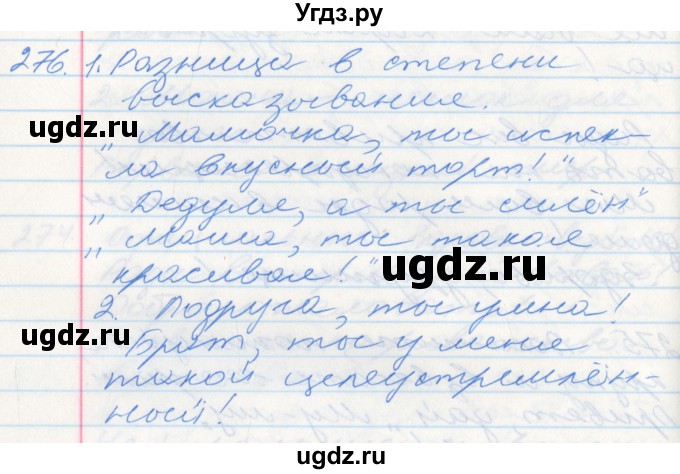 Угдз.ру
276. 1. Разница в степени
высказывания.
ugdz.ru
„Мамочка, ты испек-
ла вкусный торт!"
„Дедуля, а ты силён"
ugdz.ru
„Маша, ты такая
красивая!"
ugdz.ru
2. Подруга, ты умна!
Брат, ты у меня
такой целеустремлён-
ный!
ugdz.ru
Угдз.ру